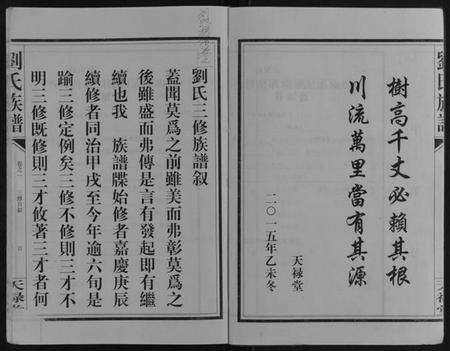 樹高千丈必賴其根
川流萬里當有其源
天禄堂
二〇一五年乙未冬
劉氏三修族譜叙
蓋聞莫爲之前雖美而弗彰莫爲之
後雖盛而弗傳是言有發起即有繼
續也我 族譜牒始修者嘉慶庚辰
續修者同治甲戌至今年逾六旬是
踰三修定例矣三修不修則三才不
明三修既修則三才攸著三才者何
劉氏族譜
卷之一
天禄堂
劉氏族譜